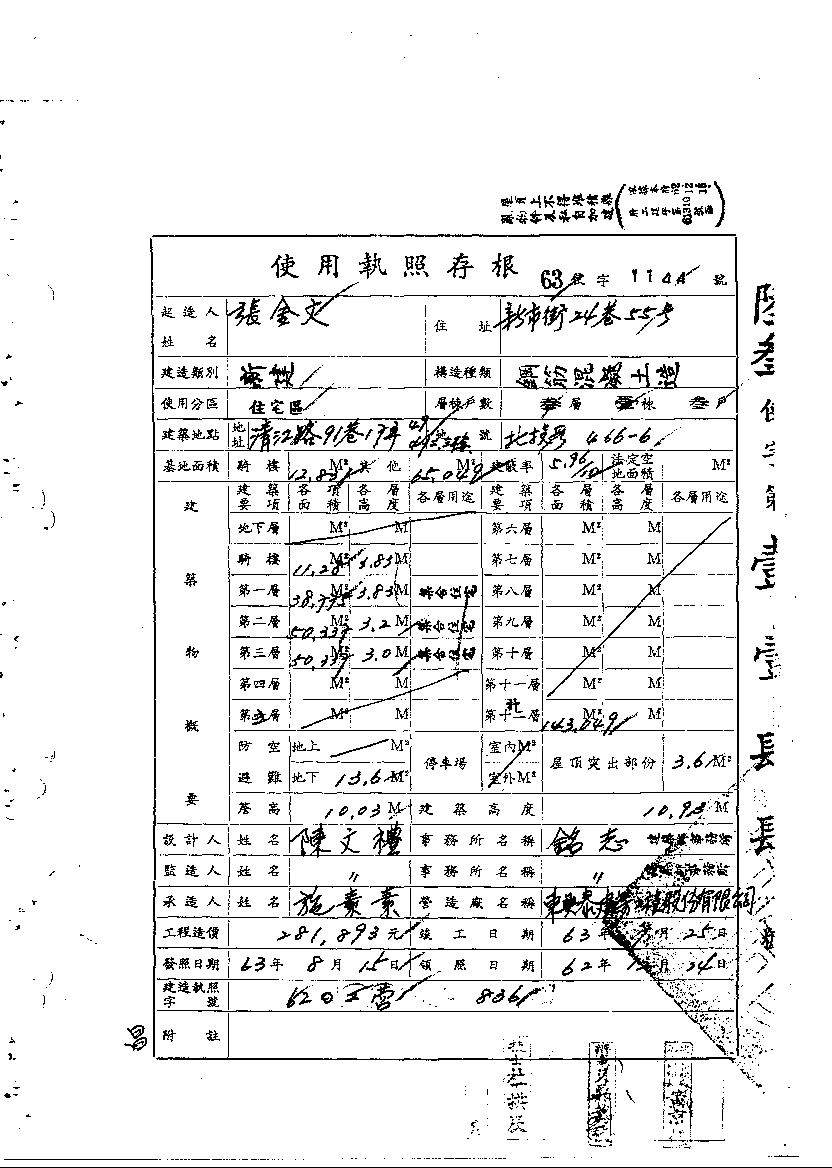 使用執照存根 63 使字 1144 號
起造人姓名 張金文 住址 新市街24巷55号
建造類別 新建 構造種類 鋼筋混凝土造
使用分區 住宅區 層棟戶數 叁層 壹棟 叁戶
建築地點 地址 清江路91巷17弄 地號 北投段 466-6
基地面積 騎樓 12.831 M² 其他 65.049 M² 建蔽率 5.96/10 法定空地面積 M²
建築物概要
建築要項 各項面積 各層高度 各層用途 建築要項 各層面積 各層高度 各層用途
地下層 M² M 第六層 M² M
騎樓 11.28 M² 3.83 M 第七層 M² M
第一層 38.775 M² 3.83 M 集合住宅 第八層 M² M
第二層 50.337 M² 3.2 M 集合住宅 第九層 M² M
第三層 50.337 M² 3.0 M 集合住宅 第十層 M² M
第四層 M² M 第十一層 M² M
第五層 M² M 第十二層 計 143.049 M² M
防空避難 地上 M² 停車場 室內 M² 屋頂突出部份 3.6 M²
地下 13.6 M² 室外 M²
簷高 10.03 M 建築高度 10.93 M
設計人 姓名 陳文禮 事務所名稱 銘志 建築師事務所
監造人 姓名 〃 事務所名稱 〃
承造人 姓名 施素素 營造廠名稱 股份有限公司
工程造價 281,893元 竣工日期 63年 月25日
發照日期 63年8月15日 領照日期 62年12月24日
建造執照字號 62 工營 8361
附註
昌